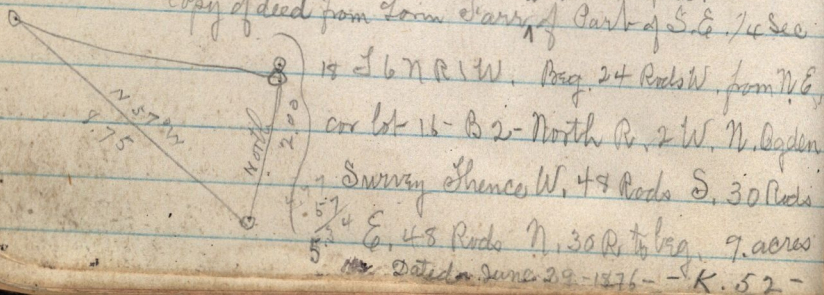 Copy of deed from Lorin Farr, of Part of S.E. 1/4 Sec
18 T 6 N R 1 W. Beg. 24 Rods W. from N.E.
cor lot 16 - B 2 - North R. 2 W. N. Ogden
Survey Thence W. 48 Rods S. 30 Rods
E. 48 Rods N. 30 R. to beg. 9. acres
Dated June 29 - 1876 - - K. 52 -
N 57 W
8.75
North
2.00
57
5 3/4